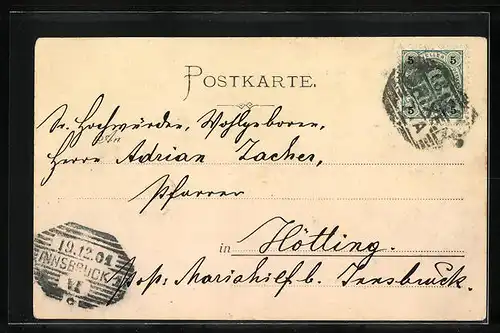 5 5
5 5
POSTKARTE.
Sr. Hochwürden, Wohlgeboren,
An
Herrn Adrian Zacher,
Pfarrer
in Hötting.
Post: Mariahilf b. Innsbruck.
19.12.01
INNSBRUCK